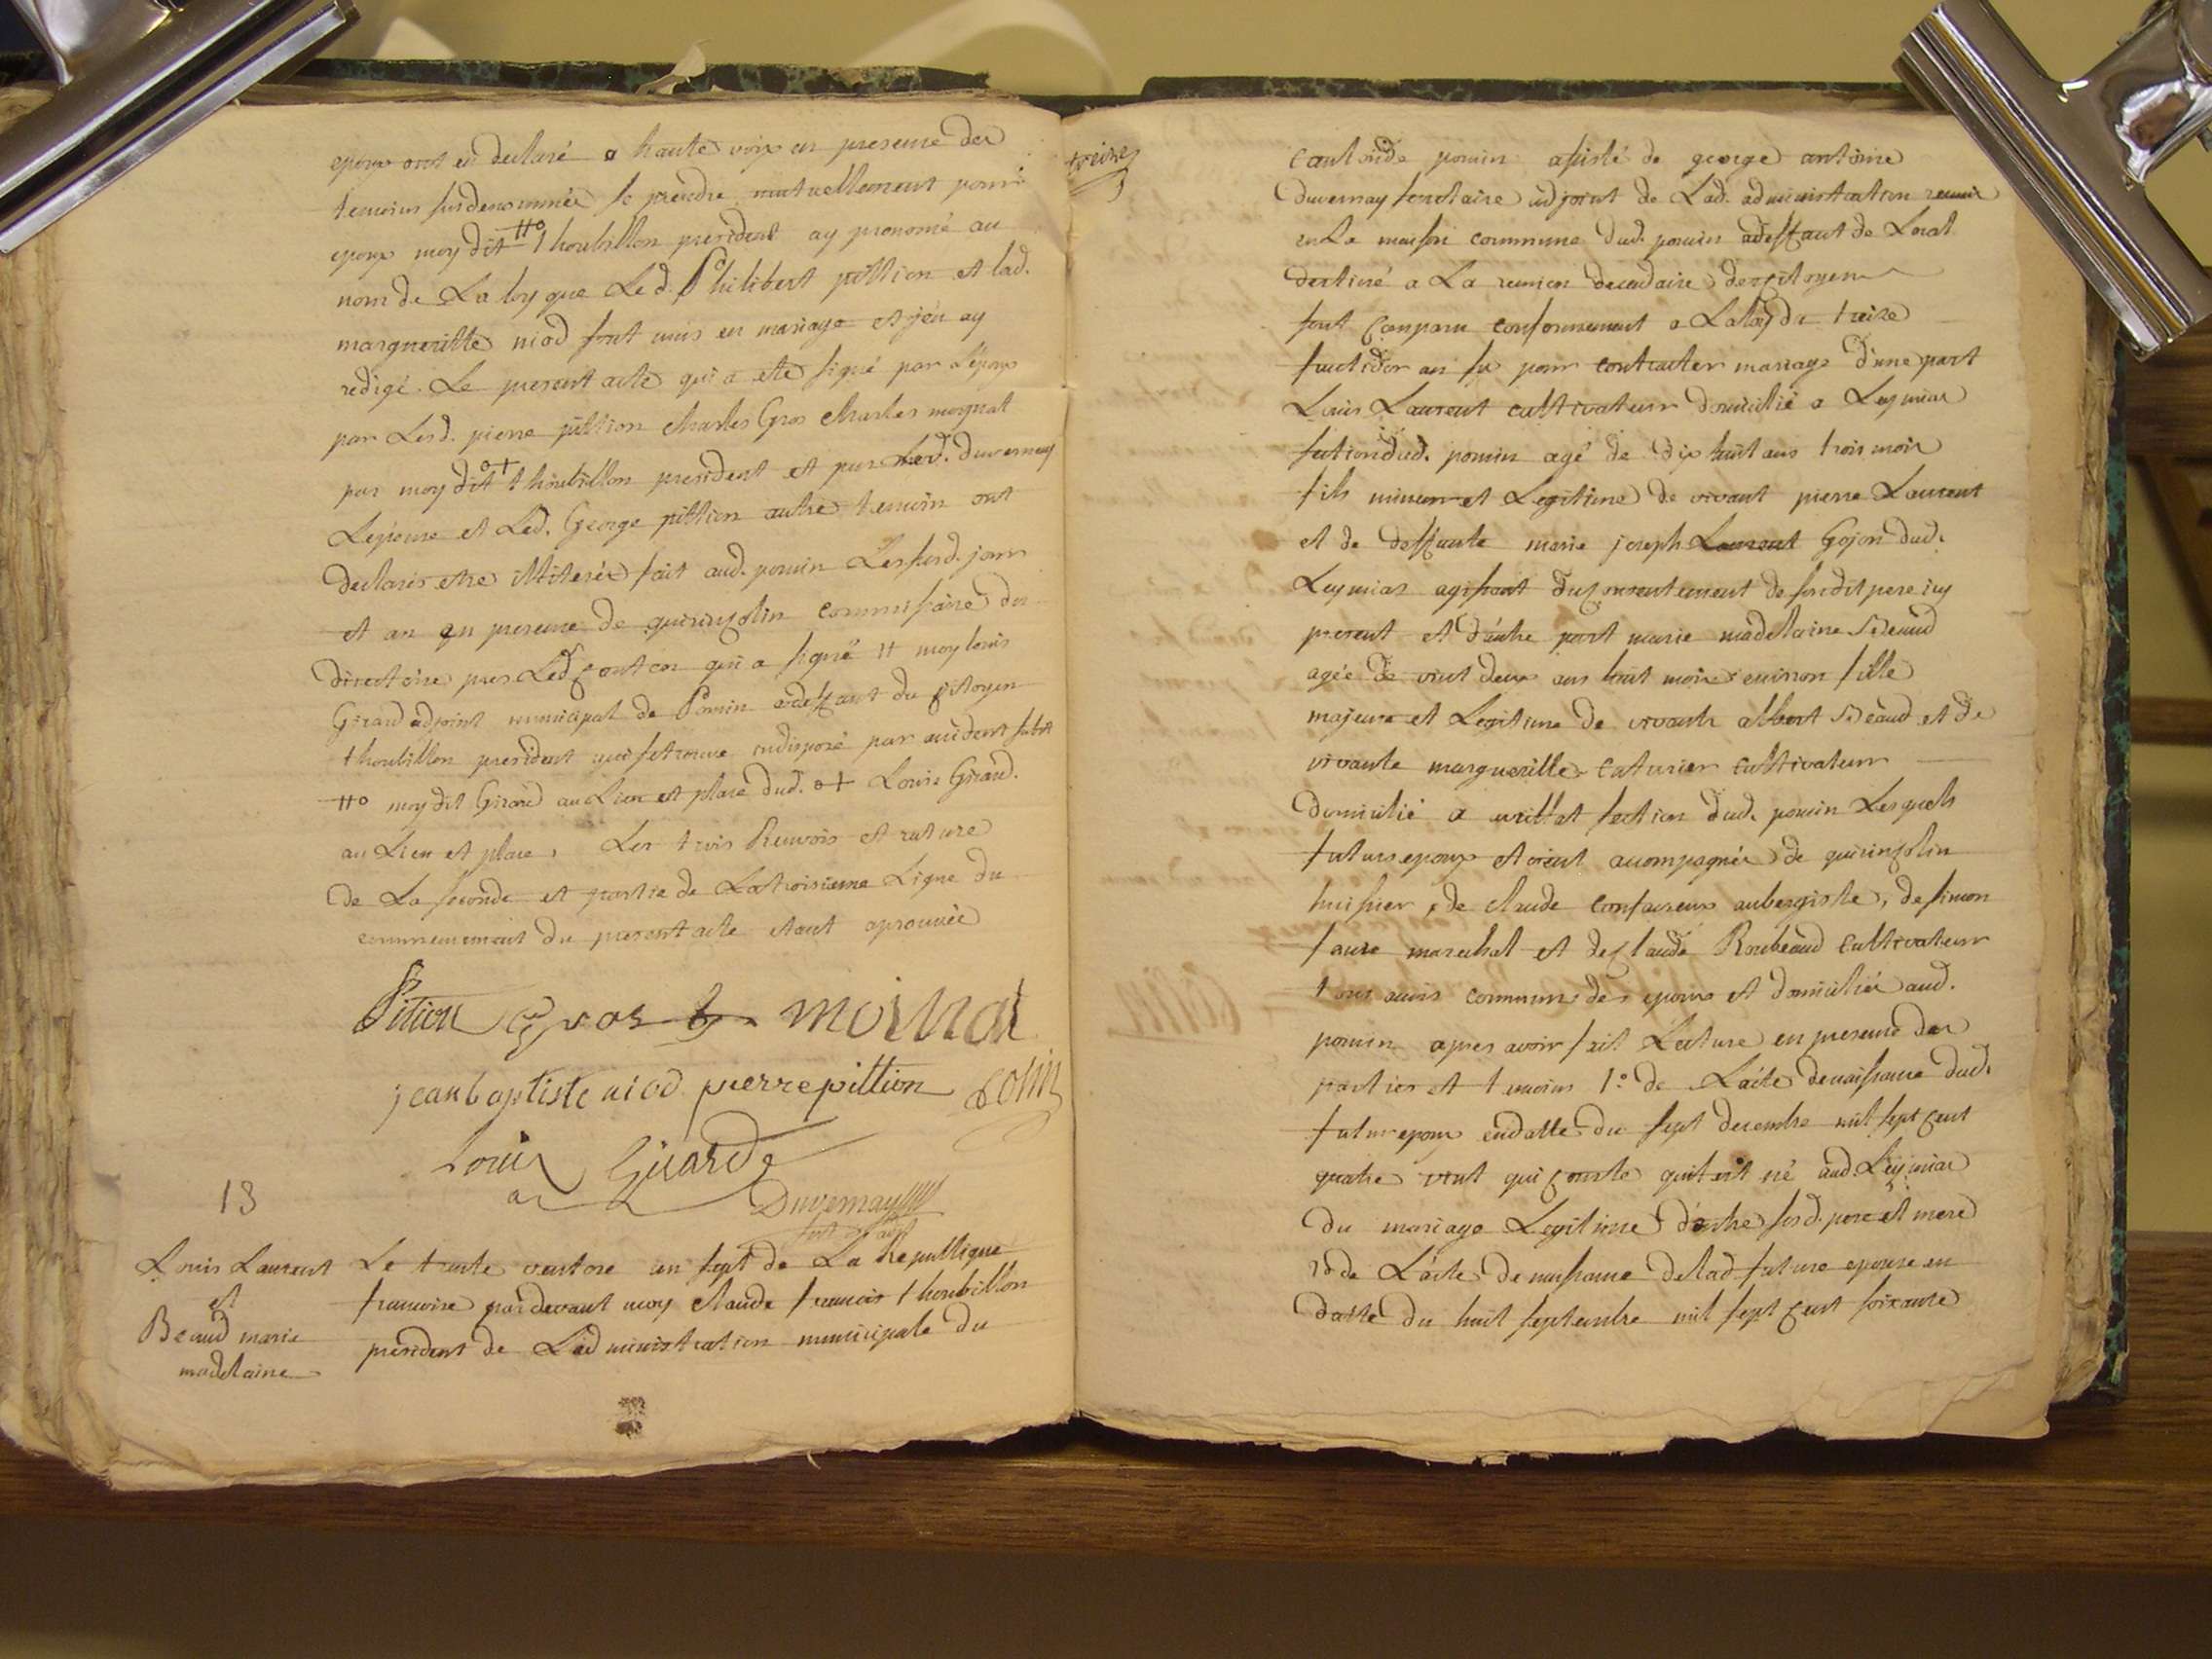 epoux ont eu declaré a haute voix en presence des
temoins susdenommés se prendre mutuellement pour
epoux moy dit #o thoubillon president ay prononcé au
nom de La loy que Led. Philibert pittion et lad.
margueritte niod sont unis en mariage et j'en ay
redigé Le present acte qui a eté signé par L'epoux
par Lesd. pierre pittion charles Gros charles moynat
par moy dit o+ thoubillon president et par Led. duvernay
L'epouse et Led. George pittion autre temoin ont
declarés etre illiterés fait aud. poncin Les susd. jour
et an en presence de quirin Colin commissaire du
directoire pres Led Canton qui a signé # moy louis
Giraud adjoint municipal de Poncin adeffaut du Citoyen
thoubillon president qui se trouve indisposé par accident subit
#o moy dit Giraud au Lieu et place dud. o+ Louis Giraud.
au Lieu et place, Les trois Renvois et rature
de La seconde et partie de La troisieme Ligne du
commencement du present acte etant aprouvée
Pition Gros moinat
jean baptiste niod pierre pittion Colin
Louis Girard
a
Duvernay
13
Louis Laurent
et
Beaud marie
madelaine
Le trente ventose an sept de La Republique
francoise pardevant moy claude francois thoubillon
president de L'administration municipale du
treize
Canton de poncin assisté de george antoine
Duvernay secretaire adjoint de Lad. administration reunis
en La maison commune dud. poncin adeffaut de Local
destiné a La reunion decadaire des Citoyens
sont Comparu conformement a La loy du treize
fructidor an six pour contracter mariage d'une part
Louis Laurent cultivateur domicilié a Leymiac
section dud. poncin agé de dix huit ans trois mois
fils mineur et Legitime de vivant pierre Laurent
et de deffunte marie joseph Laurent Gojon dud.
Leymiac agissant du Consentement de sondit pere icy
present et d'autre part marie madelaine Beaud
agée de vint deux ans huit mois environ fille
majeure et Legitime de vivants albert Beaud et de
vivante margueritte Caturier Cultivateur
domicilié a avrillat section dud. poncin Lesquels
futurs epoux etoient acompagnés de quirin Colin
huissier, de claude Confavreux aubergiste, de simon
faure marechal et de Claude Roubeaud Cultivateur
tous amis communs des epoux et domiciliés aud.
poncin apres avoir fait Lecture en presence des
parties et temoins 1o. de L'acte de naissance dud.
futur epoux en datte du sept decembre mil sept Cent
quatre vint qui Conste quil est né aud. Leymiac
du mariage Legitime d'entre sesd. pere et mere
2o de L'acte de naissance de lad future epouse en
datte du huit septembre mil sept Cent soixante